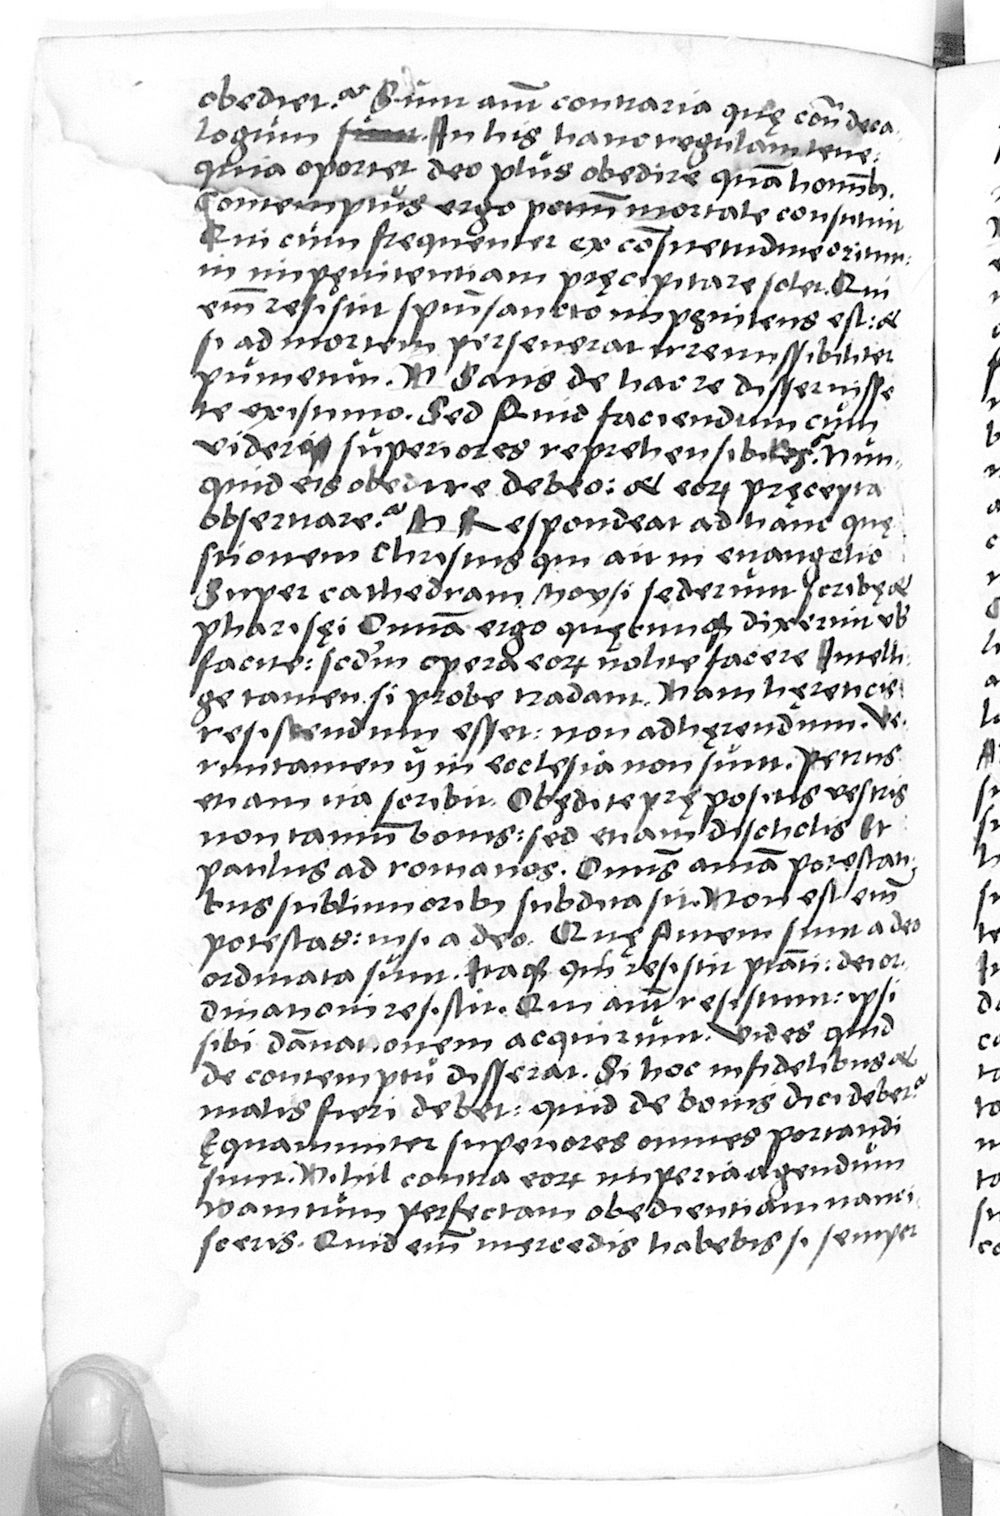 obediet? Sunt aūt contraria quę cōn̄ deca-
logum sunt. In his hanc regulam tene:
quia oportet deo plus obedire quā homīb;.
Contemptus ergo potun̄ mortale constituit
Qui cum frequenter ex cōsuetudine oritur:
in impęnitentiam pręcipitare solet. Qui
em̄ resistit spūi sancto impęnitens est: &
si ad mortem perseuerat irremissibiliter
punietur. N Satis de hac re disseruisse
te existimo. Sed Quid faciendum cum
videris superiores reprehensibiles? Nun-
quid eis obedire debeo: & eorꝝ pręcepta
obseruare? N Respondeat ad hanc quę
stionem Christus qui ait in euangelio
Super cathedram Moysi sederunt scribę &
pharisęi Omnia ergo quęcunqꝫ dixerint vob
facite: scd'm opera eorꝝ nolite facere Intelli-
ge tamen si probe tradant. Nam hęreticis
resistendum esset: non adhęrendum. Ve-
runtamen ij in ecclesia non sunt. Petrus
etiam ita scribit. Obędite prępositis vestris
non tantum̄ bonis: sed etiam discholis Et
paulus ad romanos. Omnis anīa potestati-
bus sublimioribꝫ subdita sit. Non est em̄
potestas: nisi a deo. Quę Autem sunt a deo
ordinata sunt. Itaqꝫ qui resistit ptāti: dei or-
dinationi resistit. Qui aūt resistunt: ipsi
sibi dānationem acquirunt. Vides quid
de contemptu disserat. Si hoc infidelibus &
malis fieri debet: quid de bonis dici debet?
Ęquanimiter superiores omnes portandi
sunt. Nihil contra eorꝝ imperia agendum
nam tum perfectam obedientiam nanci-
sceris. Quid em̄ mercedis habebis si semper